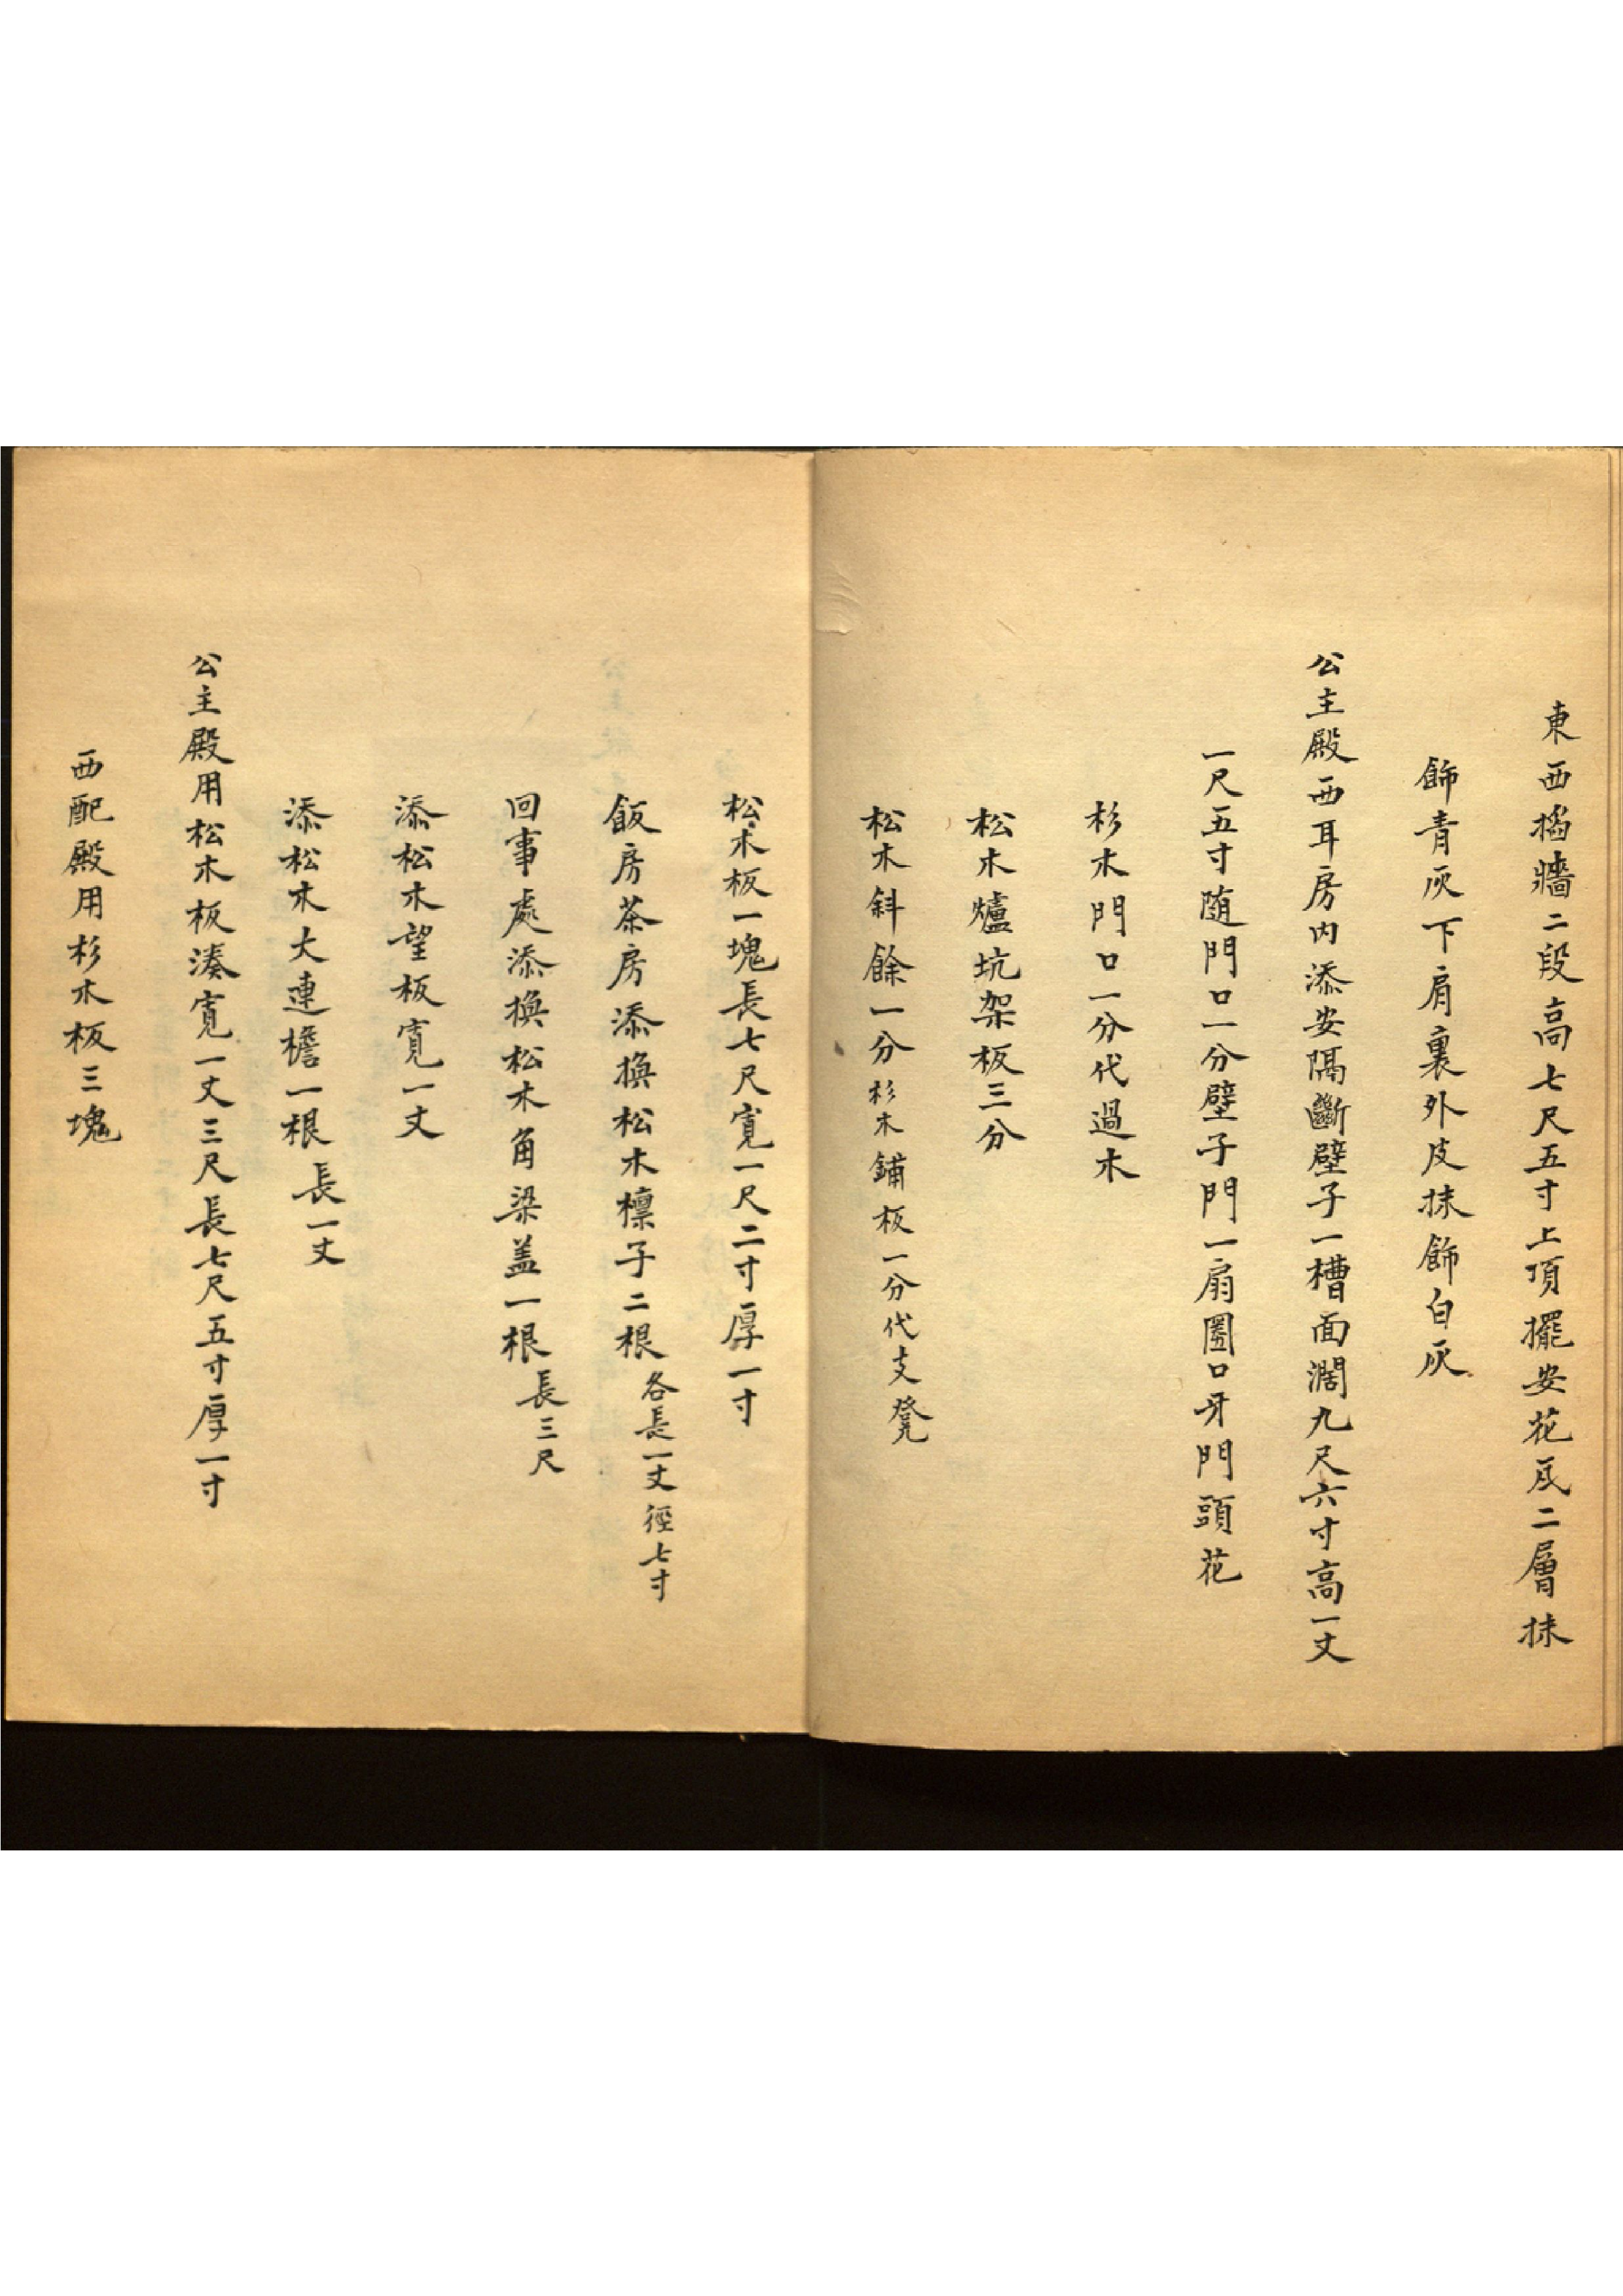 東西搊牆二段高七尺五寸上頂擺安花瓦二層抹
飾青灰下肩裏外皮抹飾白灰
公主殿西耳房内添安隔斷壁子一槽面濶九尺六寸高一丈
一尺五寸随門口一分壁子門一扇圈口牙門頭花
杉木門口一分代過木
松木爐坑架板三分
松木斜餘一分杉木鋪板一分代支凳
松木板一塊長七尺寛一尺二寸厚一寸
飯房茶房添換松木檩子二根各長一丈徑七寸
回事處添換松木角梁盖一根長三尺
添松木望板寛一丈
添松木大連檐一根長一丈
公主殿用松木板湊寛一丈三尺長七尺五寸厚一寸
西配殿用杉木板三塊